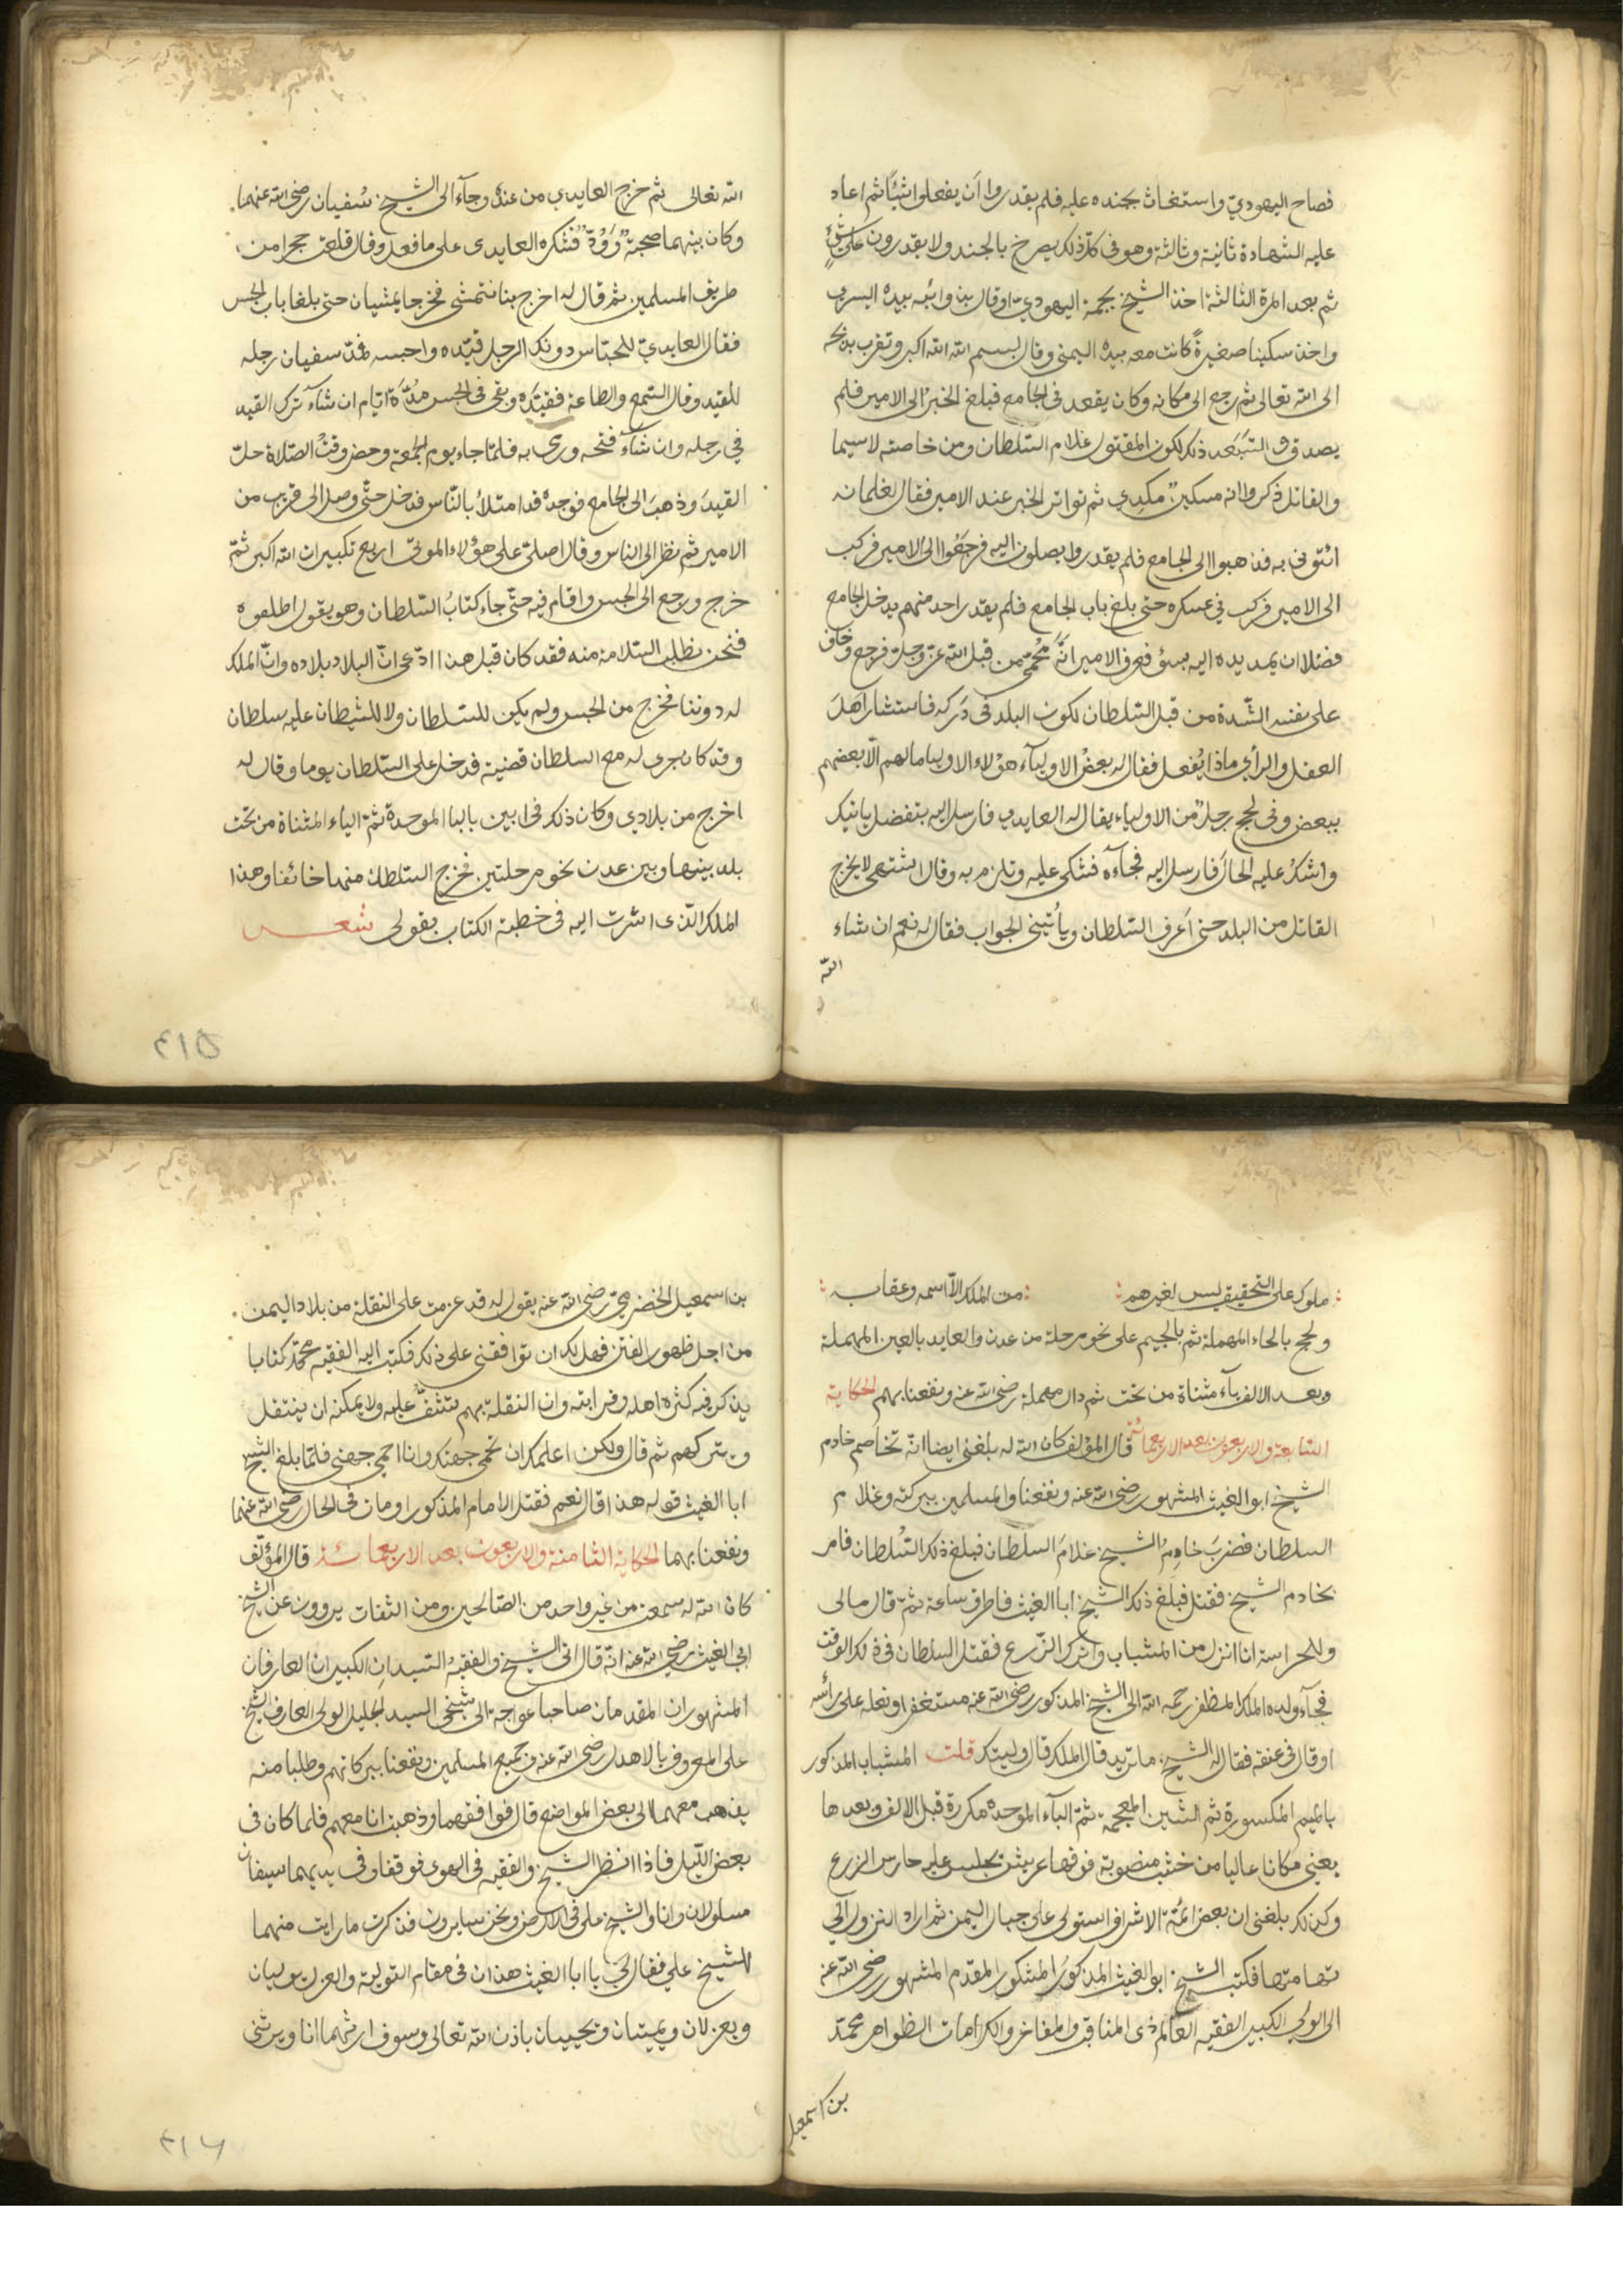 فصاح اليهوديّ واستغاث بجنده عليه فلم يقدروا اَن يفعلوا شيئًا ثم اعاد
عليه الشهادة ثانية وثالثة وهو فى كلّ ذلك يصرخ بالجند ولا يقدرون على شئٍ
ثم بعد المرة الثالثة اخذ الشيخ بجمة اليهوديّ او قال بذوائبه بيده اليسرى
واخذ سكينا صغيرةً كانت معه بيده اليمنى وقال بسم الله الله اكبر وتقرب بذبحه
الى الله تعالى ثم رجع الى مكانه وكان يقعد فى الجامع فبلغ الخبرُ الى الامير فلم
يصدق واستبعد ذلك لكون المقتول غلام السّلطان ومن خاصته لاسيما
والقاتل ذكروا انه مسكين مكدي ثم تواتر الخبر عند الامير فقال لغلمانه
ائتونى به فذهبوا الى الجامع فلم يقدروا يصلون اليه فرجعُوا الى الامير فركب
الى الامير فركب فى عسكره حتى بلغ باب الجامع فلم يقدر احد منهم يدخل الجامع
فضلا ان يمد يده اليه بسؤ فعرف الامير انَّه مَحْمىّ من قبل الله عزّ وجلّ فرجع وخاف
على نفسه الشّدة من قبل السّلطان لكون البلد فى دَركه فاستشار اَهلَ
العقل والرأي ماذا يُفعل فقال له بعضُ الاوليآء هؤلاء الاوليا مالهم الّا بعضهم
ببعض وفى لحج رجلٌ من الاولياء يقال له العايدي فارسل اليه بتفضل ياتيك
واشكُ عليه الحالَ فارسل اليه فجآءه فشكى عليه وتلزم به وقال اشتهى لا يخرج
القاتل من البلد حتى اَعرف السّلطان ويأتينى الجواب فقال له نعم ان شاء
الله
الله تعالى ثم خرج العايدي من عنده وجآء الى الشيخ سُفيان رضى الله عنهما
وكان بينهما صحبةٌ وَوُدّةٌ فشكره العايدى على ما فعل وقال قلعتَ حجرا من
طريق المسلمين ثم قال له اخرج بنا نتمشى فخرجا يمشيان حتى بلغا باب الحبس
فقال العايديّ للحبّاس دونك الرجل قيّده واحبسه فمدّ سفيان رجله
للقيد وقال السّمع والطاعة فقيّدَه وبقى فى الحبس مُدّةَ ايّام ان شآء ترك القيد
في رجله وان شآء فتحه ورمى به فلمّا جاء يوم الجُمعة وحضر وقتُ الصّلاة حلّ
القيدَ وذهبَ الى الجامع فوجده قد امتلأ بالنّاس فدخل حتّى وصل الى قريب من
الامير ثم نظر الى الناس وقال اصلّى على هؤلاء الموتى اربع تكبيرات الله اكبر ثمّ
خرج ورجع الى الحبس واقام فيه حتّى جاء كتابُ السّلطان وهو يقول اطلقوه
فنحن نطلب السّلامة منه فقد كان قبل هذا ادّعى انّ البلاد بلاده وانّ الملك
له دوننا فخرج من الحبس ولم يكن للسّلطان ولا للشيطان عليه سلطان
وقد كان جرى له مع السلطان قضية فدخل على السّلطان يوما وقال له
اخرج من بلادي وكان ذلك فى ابين بالبا الموحدة ثمّ الياء المثناة من تحت
بلد بينها وبين عدن نحو مرحلتين فخرج السّلطان منها خائفا وهذا
الملك الذى اشرت اليه فى خطبة الكتاب بقولى شعـــر
٣١٥
ملوك على التحقيق ليس لغيرهم من الملك الّا اسمه وعقابه
ولحج بالحاء المهملة ثم بالجيم على نحو مرحلة من عدن والعايد بالعين المهملة
وبعد الالف يآء مثناة من تحت ثم دال مهملة رضى الله عنه ونفعنا بهم الحكاية
السّابعة والاربعون بعد الاربعمائة قال المؤلف كان الله له بلغنى ايضا انّه تخاصم خادم
الشيخ ابو الغيث المشهور رضى الله عنه ونفعنا والمسلمين ببركته وغلام
السلطان فضربَ خادمُ الشيخ غلامَ السلطان فبلغ ذلك السُلطان فامر
بخادم الشيخ فقتل فبلغ ذلك الشيخ ابا الغيث فاطرق ساعة ثمّ قال مالى
وللحراسة انا انزل من المشباب واترك الزّرع فقتل السلطان فى ذلك الوقت
فجآء ولده الملك المظفر رحمه الله الى الشيخ المذكور رضى الله عنه مستغفرا ونعله على رأسه
او قال فى عنقه فقال له الشيخ ما تريد قال الملك قال وليتك قلت المشباب المذكور
بالميم المكسورة ثم الشين المعجمة ثمّ البآء الموحدة مكررة قبل الالف وبعدها
يعنى مكانا عاليا من خشب منصوبة فوقها عريش يجلس عليه حارس الزرع
وكذلك بلغنى ان بعض ائمّة الاشراف استولى على جبال اليمن ثم اراد النزول الى
تهامتها فكتب الشيخ ابو الغيث المذكورُ المشكور المقدّم المشهور رضى الله عنه
الى الولى الكبير الفقيه العالم ذى المناقب والمفاخر والكرامات الظواهر محمّد
بن اسمعيل
بن اسمعيل الحضرميّ رضى الله عنه يقول له قد عزمت على النقلة من بلاد اليمن
من اجل ظهور الفتن فهل لك ان توافقنى على ذلك فكتب اليه الفقيه محمّد كتابا
يذكر فيه كثرة اهله وقرابته وان النقلة بهم تشقّ عليه ولا يمكنه ان ينتقل
ويتركهم ثم قال ولكن اعلمك ان تحمى جهتك وانا احمى جهتى فلمّا بلغ الشيخ
ابا الغيث قوله هذا قال نعم فقتل الامام المذكور او مات فى الحال رضى الله عنهما
ونفعنا بهما الحكاية الثامنة والاربعون بعد الاربعمائة قال المؤلّف
كان الله له سمعت من غير واحد من الصّالحين ومن الثقات يروون عن الشيخ
ابى الغيث رضى الله عنه انّه قال اتى الشيخ والفقيهُ السّيدانِ الكبيران العارفان
المشهوران المقدمان صاحبا عواجة الى شيخى السيد الجليل الولى العارف الشيخ
على المعروف بالاهدل رضى الله عنه وجميع المسلمين ونفعنا ببركاتهم وطلبا منه
يذهب معهما الى بعض المواضع قال فوافقهما وذهبت انا معهم فلما كان فى
بعض اللّيل فاذا انظر الشيخ والفقيه فى الهوى فوقفا وفى يديهما سيفان
مسلولان وانا والشيخ على فى الارض ونحن سايرون فذكرت ما رايت منهما
للشيخ علي فقال لىَ يا ابا الغيث هذان فى مقام التولية والعزل يوليان
ويعزلان ويميتان ويحييان باذن الله تعالى وسوف ارثهما انا ويرثنى
٣١٦